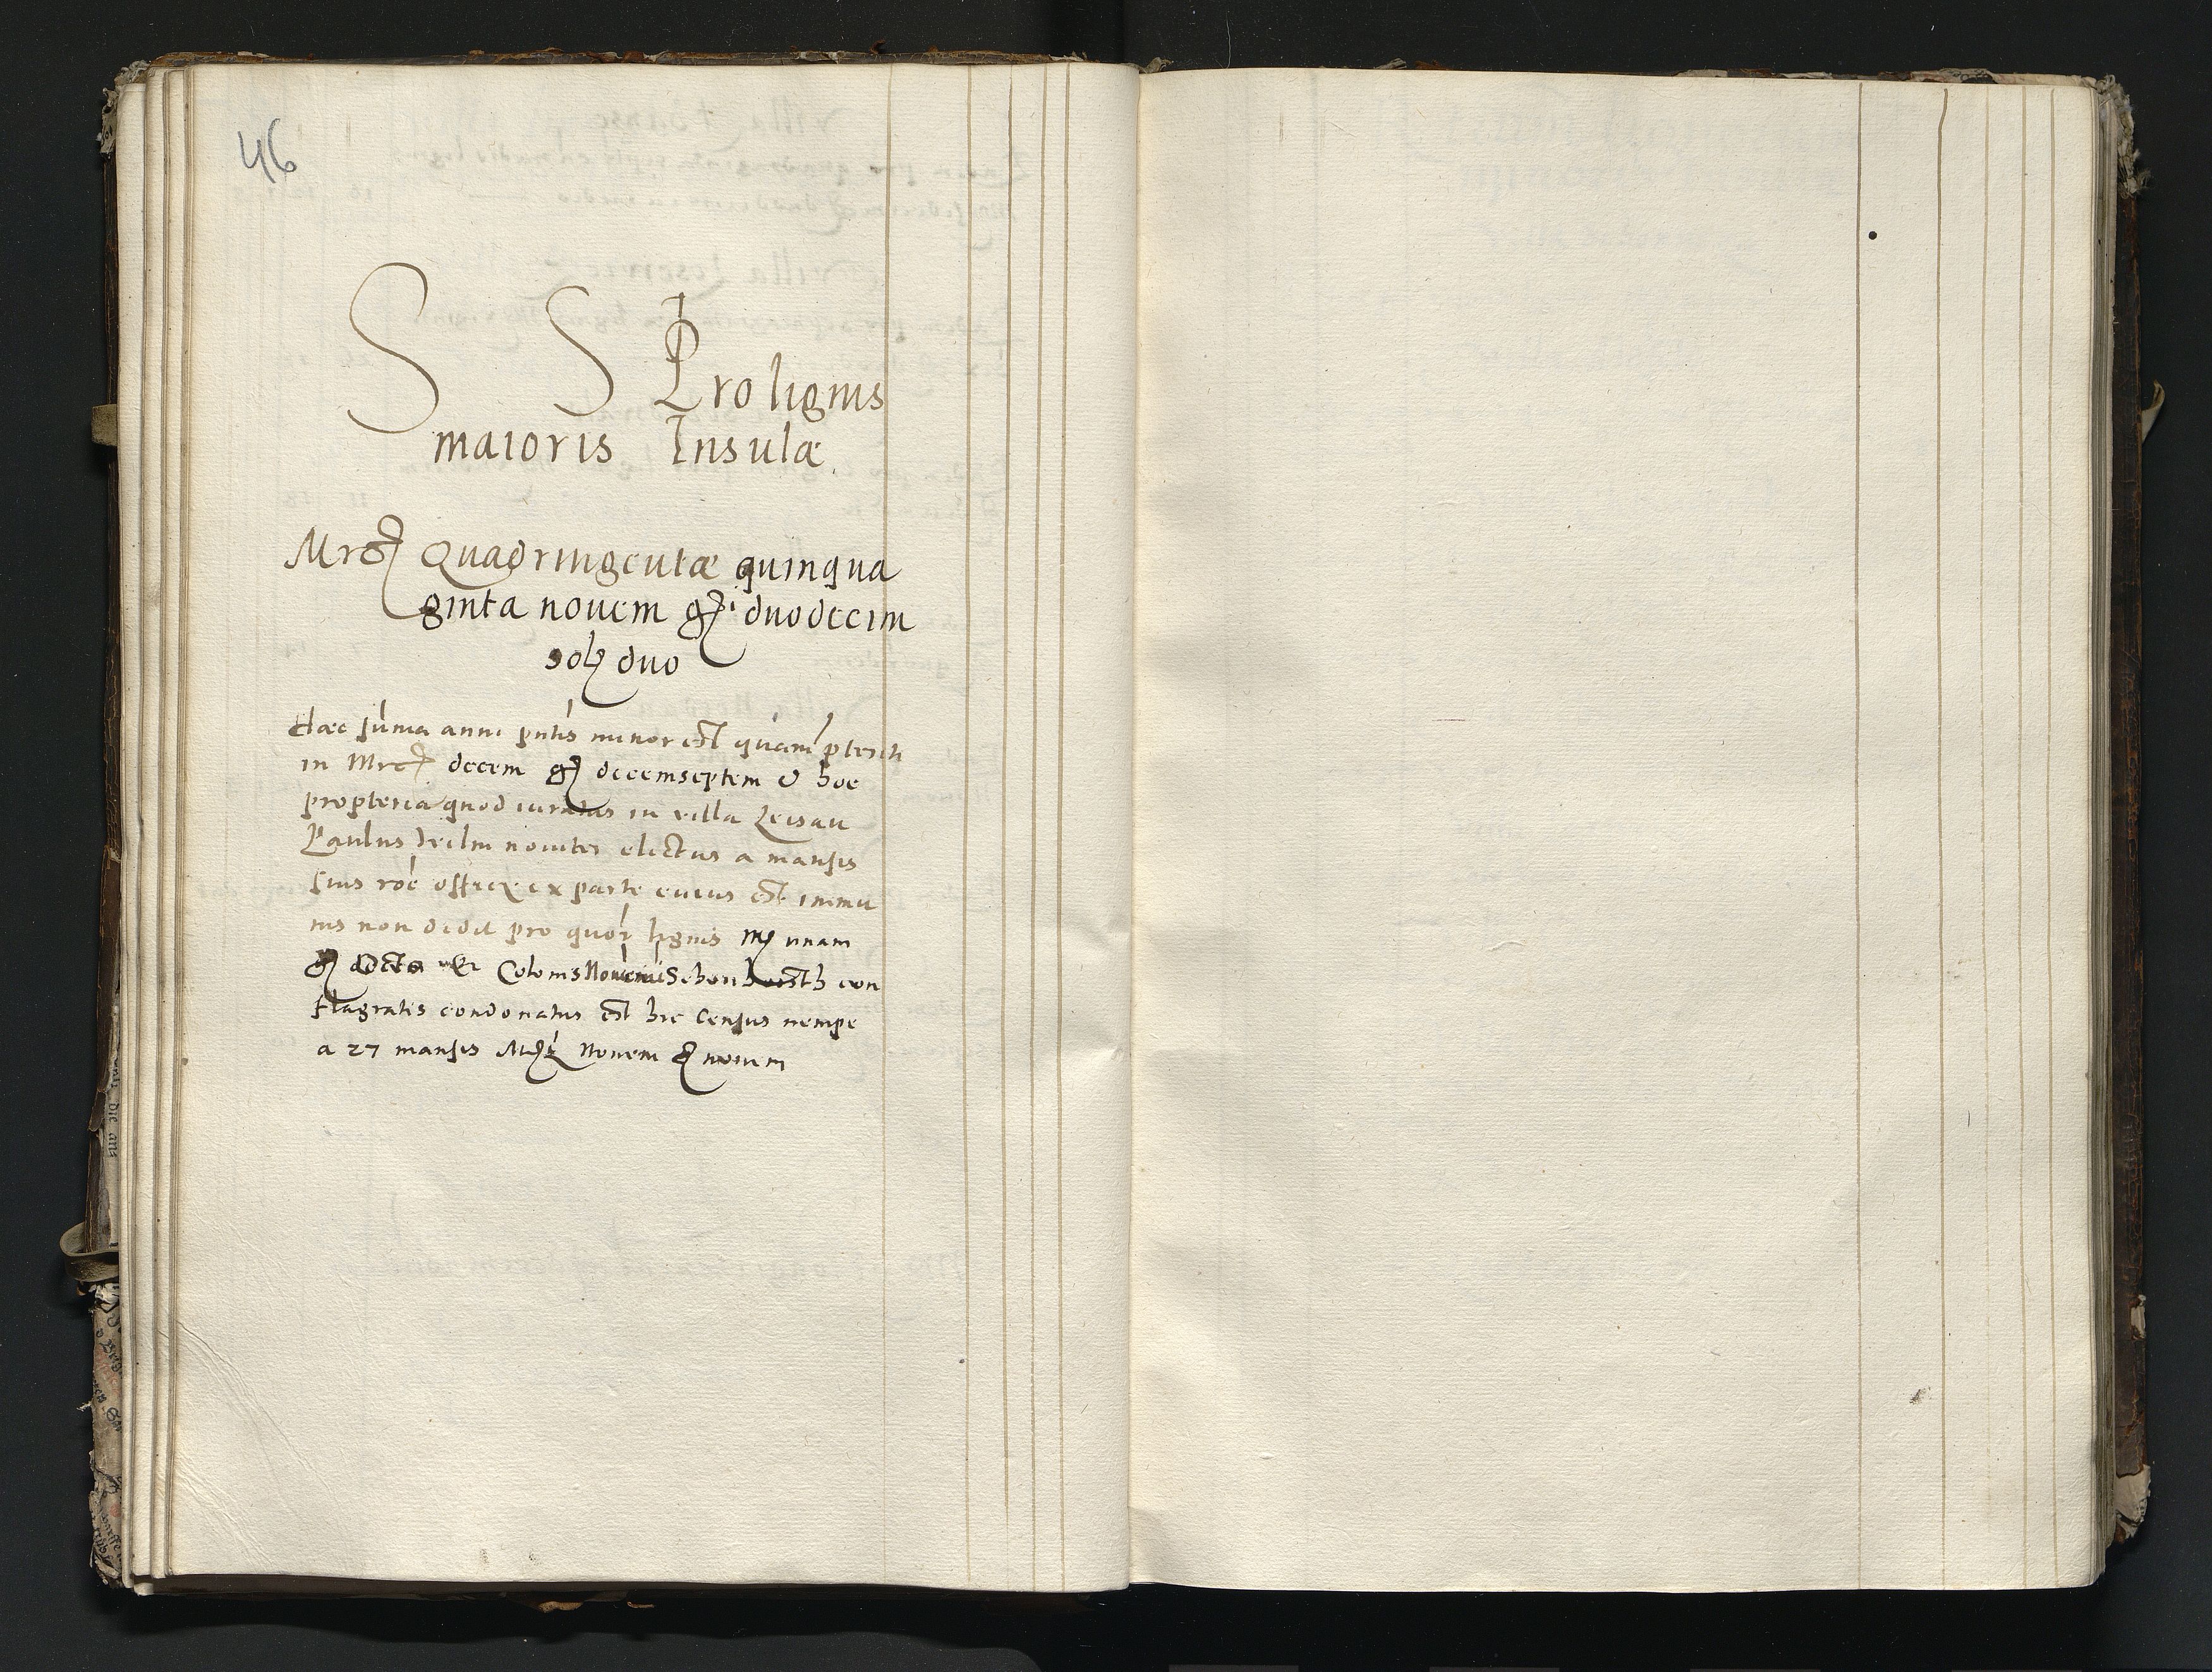 46
S S Pro lignis
maioris Insulæ
Mrc Quadringentæ quinqua
ginta novem g duodecim
sol duo
Hæc sūma anni pntis minor est quam pterit
in Mrc decem g decemseptem & hoc
propterea quod iuratus in villa Leisau
Paulus novites electus a mansis
suis roe officij ex parte cuius est immu
nis non dedit pro quor lignis M unam
g octo Et Colonis Schonhorsth con
flagratis condonatus est hic Census nempe
a 27 mansis Mr Novem g novem